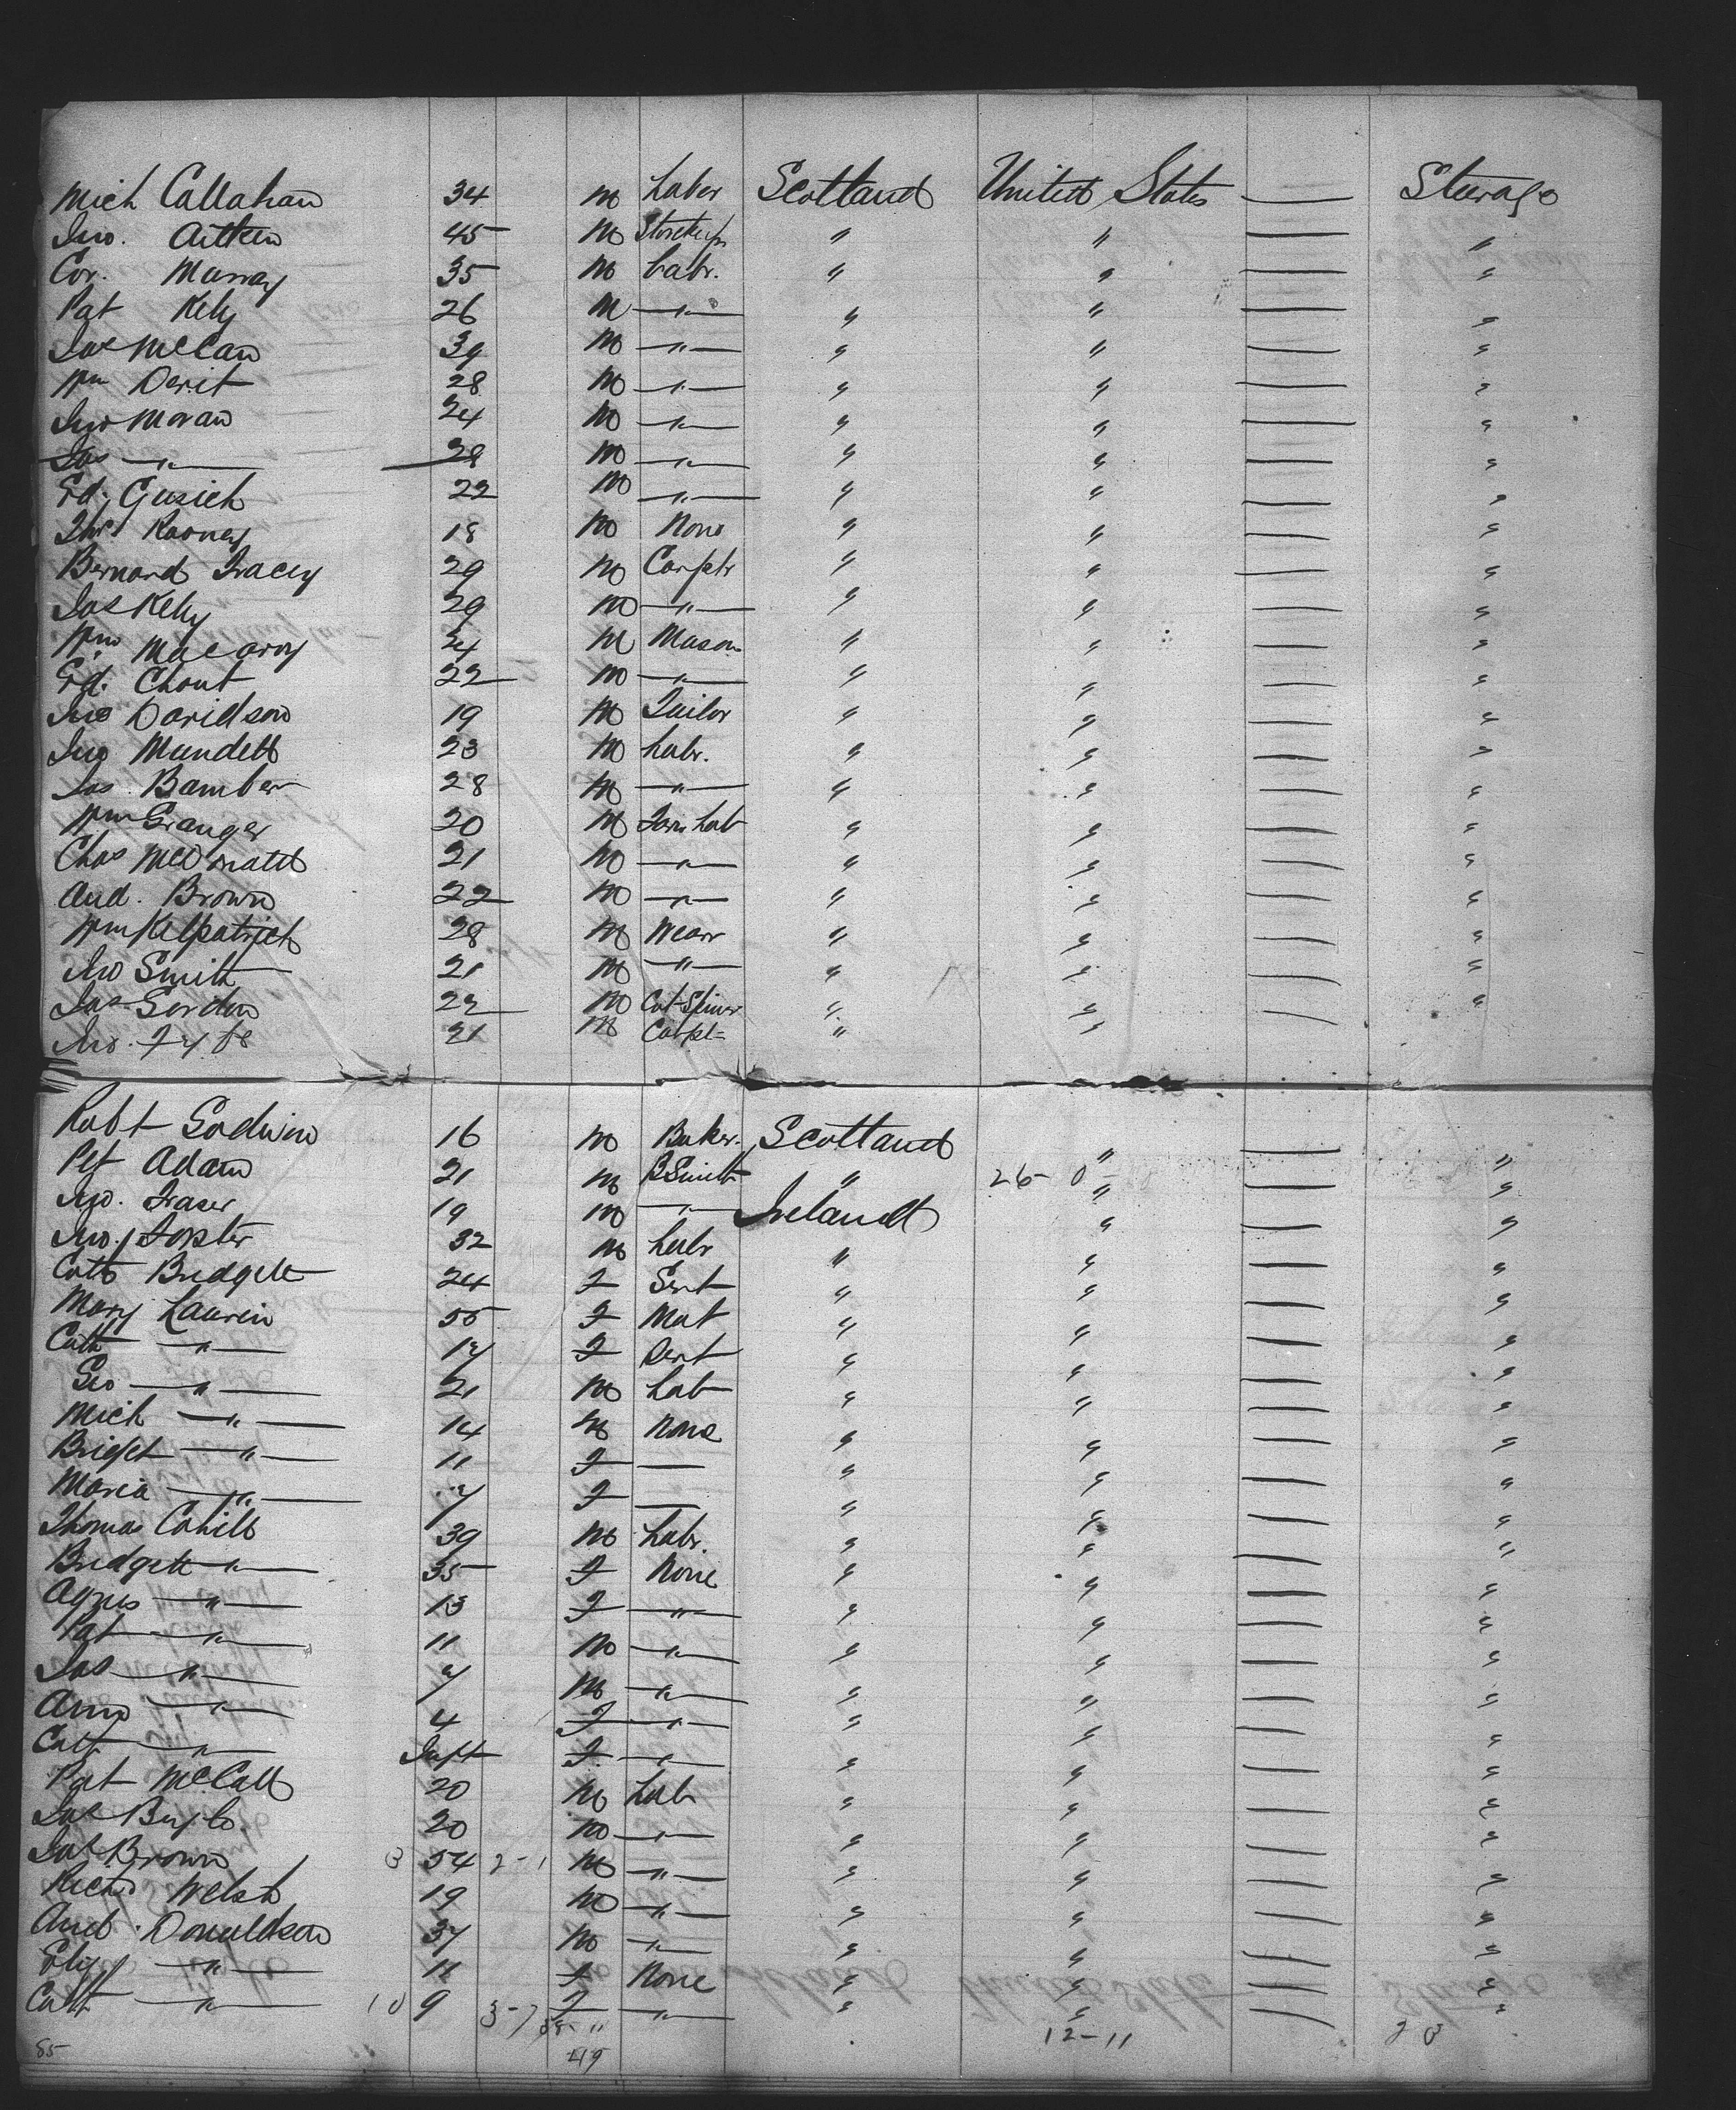 Mich Callahan 34 M Laber Scotland United States — Steerage
Jno. Aitken 45 M Storekepr " " — "
Cor. Murray 35 M Labr. " " — "
Pat Kely 26 M —"— " " — "
Jas McCan 39 M —"— " " — "
Wm Derit 28 M —"— " " — "
Jno Moran 24 M —"— " " — "
Jas —"— 28 M —"— " " — "
Ed. Gusich 22 M —"— " " — "
Thos Rooney 18 M None " " — "
Bernard Tracey 29 M Carptr " " — "
Jas Kely 29 M —"— " " — "
Wm Macaroy 24 M Mason " " — "
Ed. Chout 22 M —"— " " — "
Jno Davidson 19 M Tailor " " — "
Jno Mundell 23 M Labr. " " — "
Jas. Bamber 28 M —"— " " — "
Wm Granger 20 M Farm Lab " " — "
Chas McDonald 21 M —"— " " — "
And. Brown 22 M —"— " " — "
Wm Kelpatrick 28 M Wear " " — "
Jno Smith 21 M —"— " " — "
Jas Gordon 22 M Cot-Spinr " " — "
Jno. Fyfe 21 M Carpt "
Robt Godwin 16 M Baker. Scotland " — "
Pet Adam 21 M BSmith " 26-0 " — "
Jno. Fraser 19 M —"— Ireland " — "
Jno. Foster 32 M Labr " " — "
Cath Bridgett 24 F Sert " " — "
Mary Laurin 55 F Mat " " — "
Cath —"— 17 F Sert " " — "
Geo —"— 21 M Lab " " — "
Mich —"— 14 M None " " — "
Bridget —"— 11 F — " " — "
Maria —"— 7 F — " " — "
Thomas Cahill 39 M Labr. " " — "
Bridgett —"— 35 F None " " — "
Agnes —"— 13 F —"— " " — "
Pat —"— 11 M —"— " " — "
Jas —"— 7 M —"— " " — "
Ann —"— 4 F —"— " " — "
Cath —"— Inft F —"— " " — "
Pat McCall 20 M Lab " " — "
Jas Boyle. 20 M —"— " " — "
Jas Brown 3 54 2-1 M —"— " " — "
Richd Welsh 19 M —"— " " — "
And. Donaldson 37 M —"— " " — "
Eliz —"— 11 F None " " — "
Cath —"— 10 9 3-7 F —"— " " — "
38-11 12-11 20
85 49